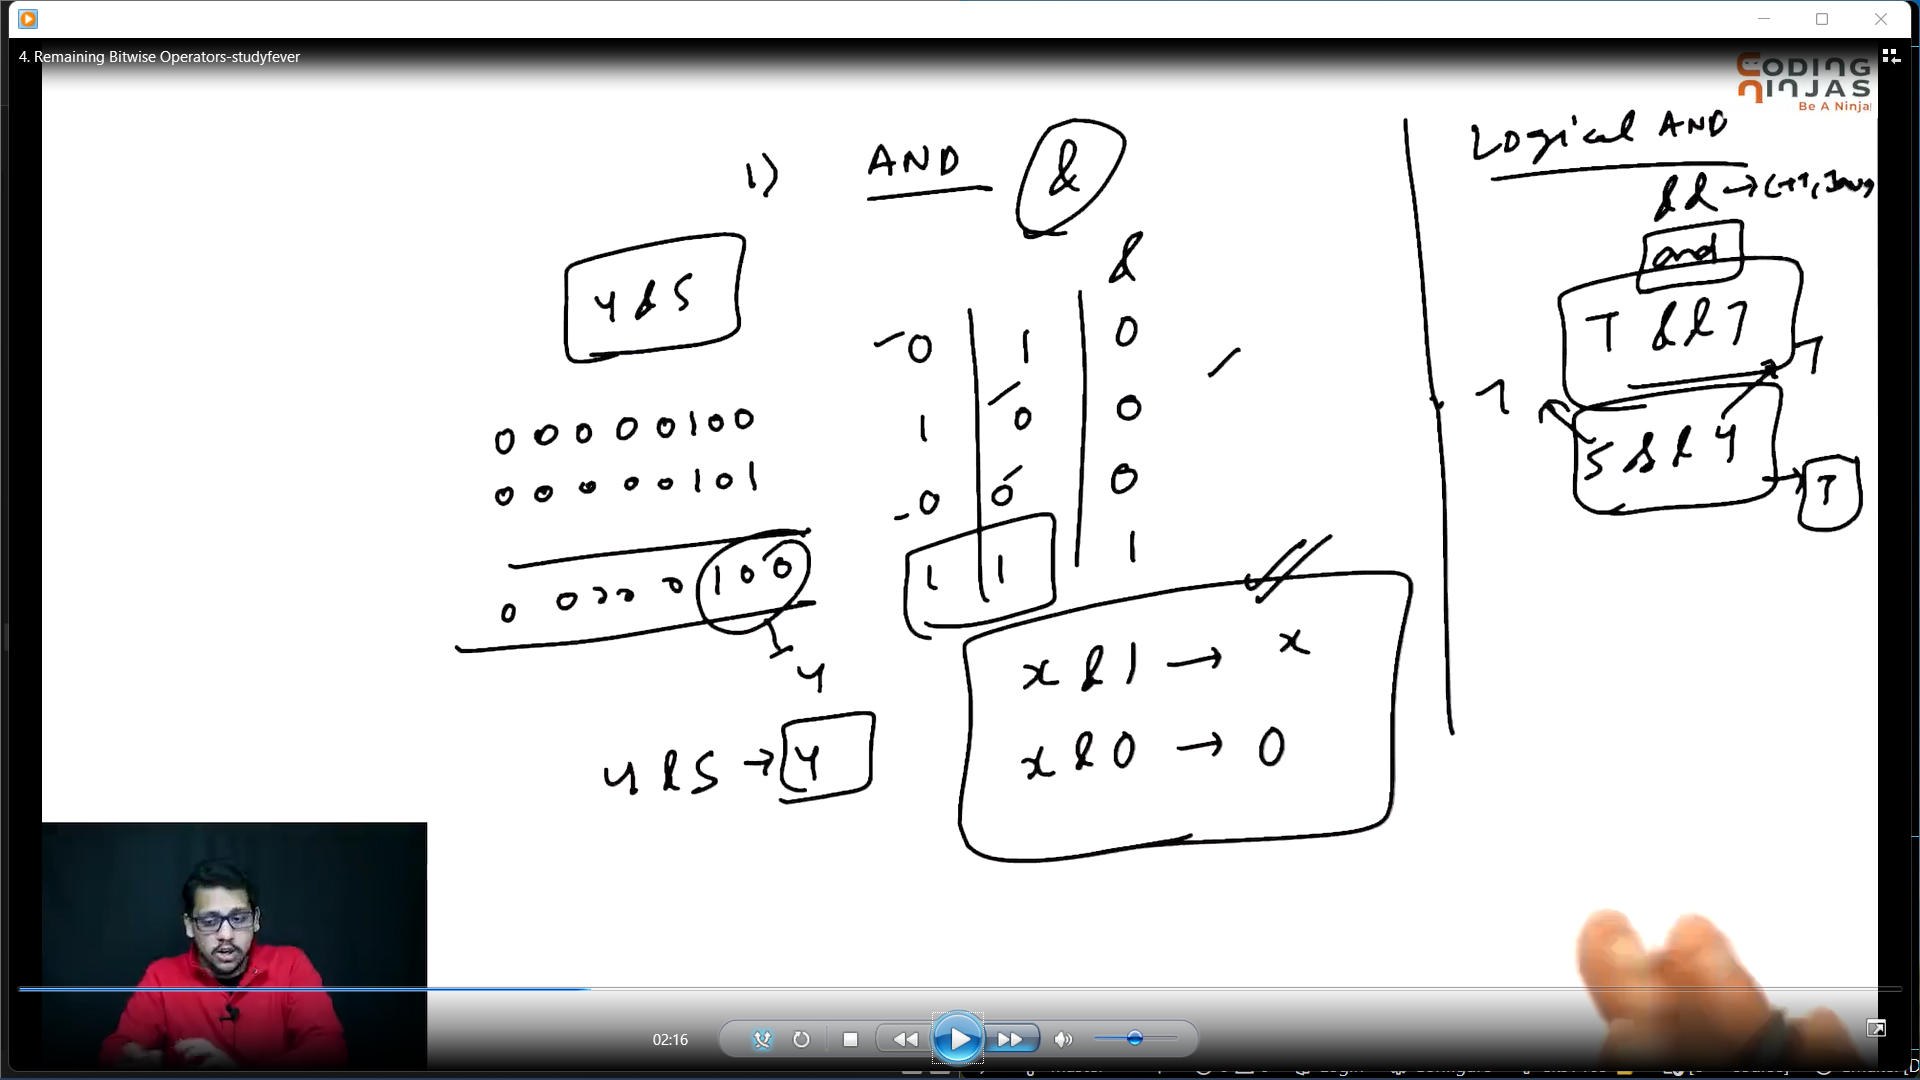 4. Remaining Bitwise Operators-studyfever
CODING
NINJAS
Be A Ninja
1) AND &
4 & 5
&
0 1 0
1 0 0
0 0 0
1 1 1
0 0 0 0 0 1 0 0
0 0 0 0 0 1 0 1
0 0 0 0 0 1 0 0
4
4 & 5 → 4
x & 1 → x
x & 0 → 0
Logical AND
&& → C++, Java
and
T && T
T
T
5 && 4
T
02:16